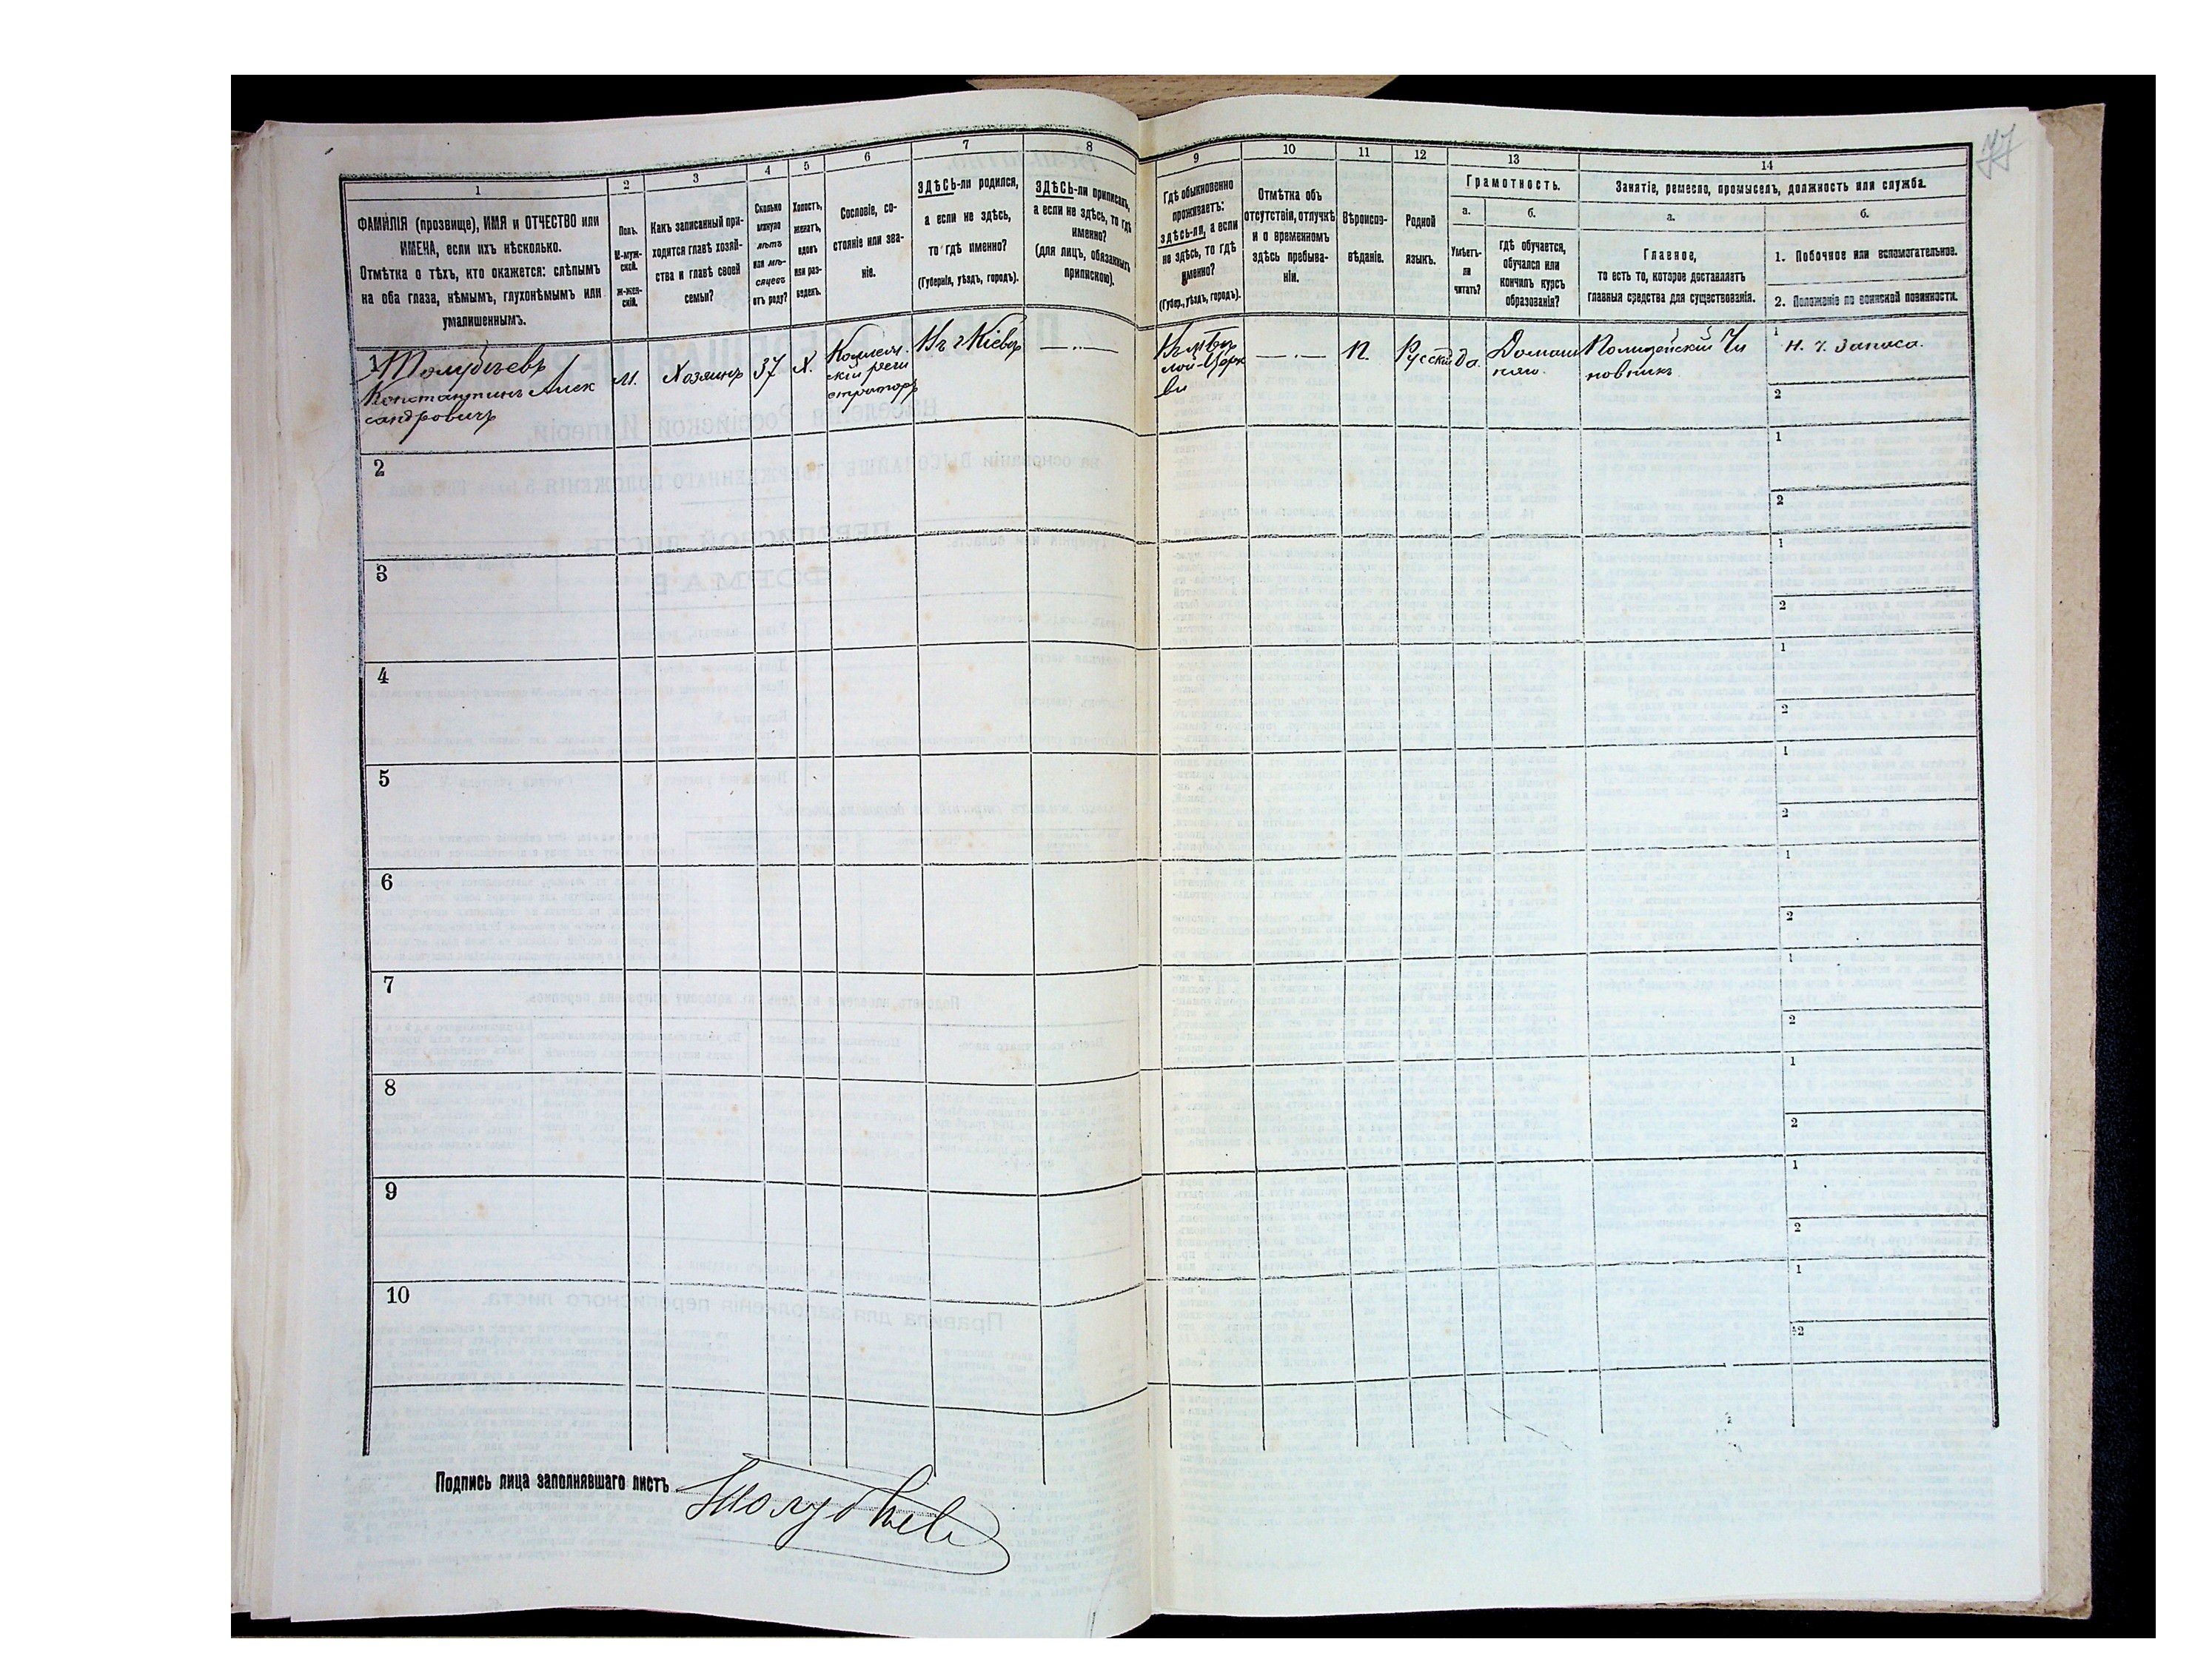 77
1
ФАМИЛІЯ (прозвище), ИМЯ и ОТЧЕСТВО или
ИМЕНА, если ихъ нѣсколько.
Отмѣтка о тѣхъ, кто окажется: слѣпымъ
на оба глаза, нѣмымъ, глухонѣмымъ или
умалишеннымъ.
2
Полъ.
М-муж-
ской.
Ж-жен-
скій.
3
Какъ записанный при-
ходится главѣ хозяй-
ства и главѣ своей
семьи?
4
Сколько
минуло
лѣтъ
или мѣ-
сяцевъ
отъ роду?
5
Холостъ,
женатъ,
вдовъ
или раз-
веденъ.
6
Сословіе, со-
стояніе или зва-
ніе.
7
ЗДѢСЬ-ли родился,
а если не здѣсь,
то гдѣ именно?
(Губернія, уѣздъ, городъ).
8
ЗДѢСЬ-ли приписанъ,
а если не здѣсь, то гдѣ
именно?
(для лицъ, обязанныхъ
припискою).
9
Гдѣ обыкновенно
проживаетъ:
здѣсь-ли, а если
не здѣсь, то гдѣ
именно?
(Губер., уѣздъ, городъ).
10
Отмѣтка объ
отсутствіи, отлучкѣ
и о временномъ
здѣсь пребыва-
ніи.
11
Вѣроиспо-
вѣданіе.
12
Родной
языкъ.
13
Грамотность.
а.
Умѣетъ-
ли
читать?
б.
гдѣ обучается,
обучался или
кончилъ курсъ
образованія?
14
Занятіе, ремесло, промыселъ, должность или служба.
а.
Главное,
то есть то, которое доставляетъ
главныя средства для существованія.
б.
1. Побочное или вспомогательное.
2. Положеніе по воинской повинности.
1
Константинъ Алек
сандровичъ
М.
Хозяинъ
37
Х.
Коллеж.
скій реги
страторъ
Въ г Кіевѣ
—..—
—..—
П.
Русскій
да.
Домаш
нее.
Полицейскій Чи
новникъ
1
Н. Ч. Запаса.
2
2
1
2
3
1
2
4
1
2
5
1
2
6
1
2
7
1
2
8
1
2
9
1
2
10
1
2
Подпись лица заполнявшаго листъ